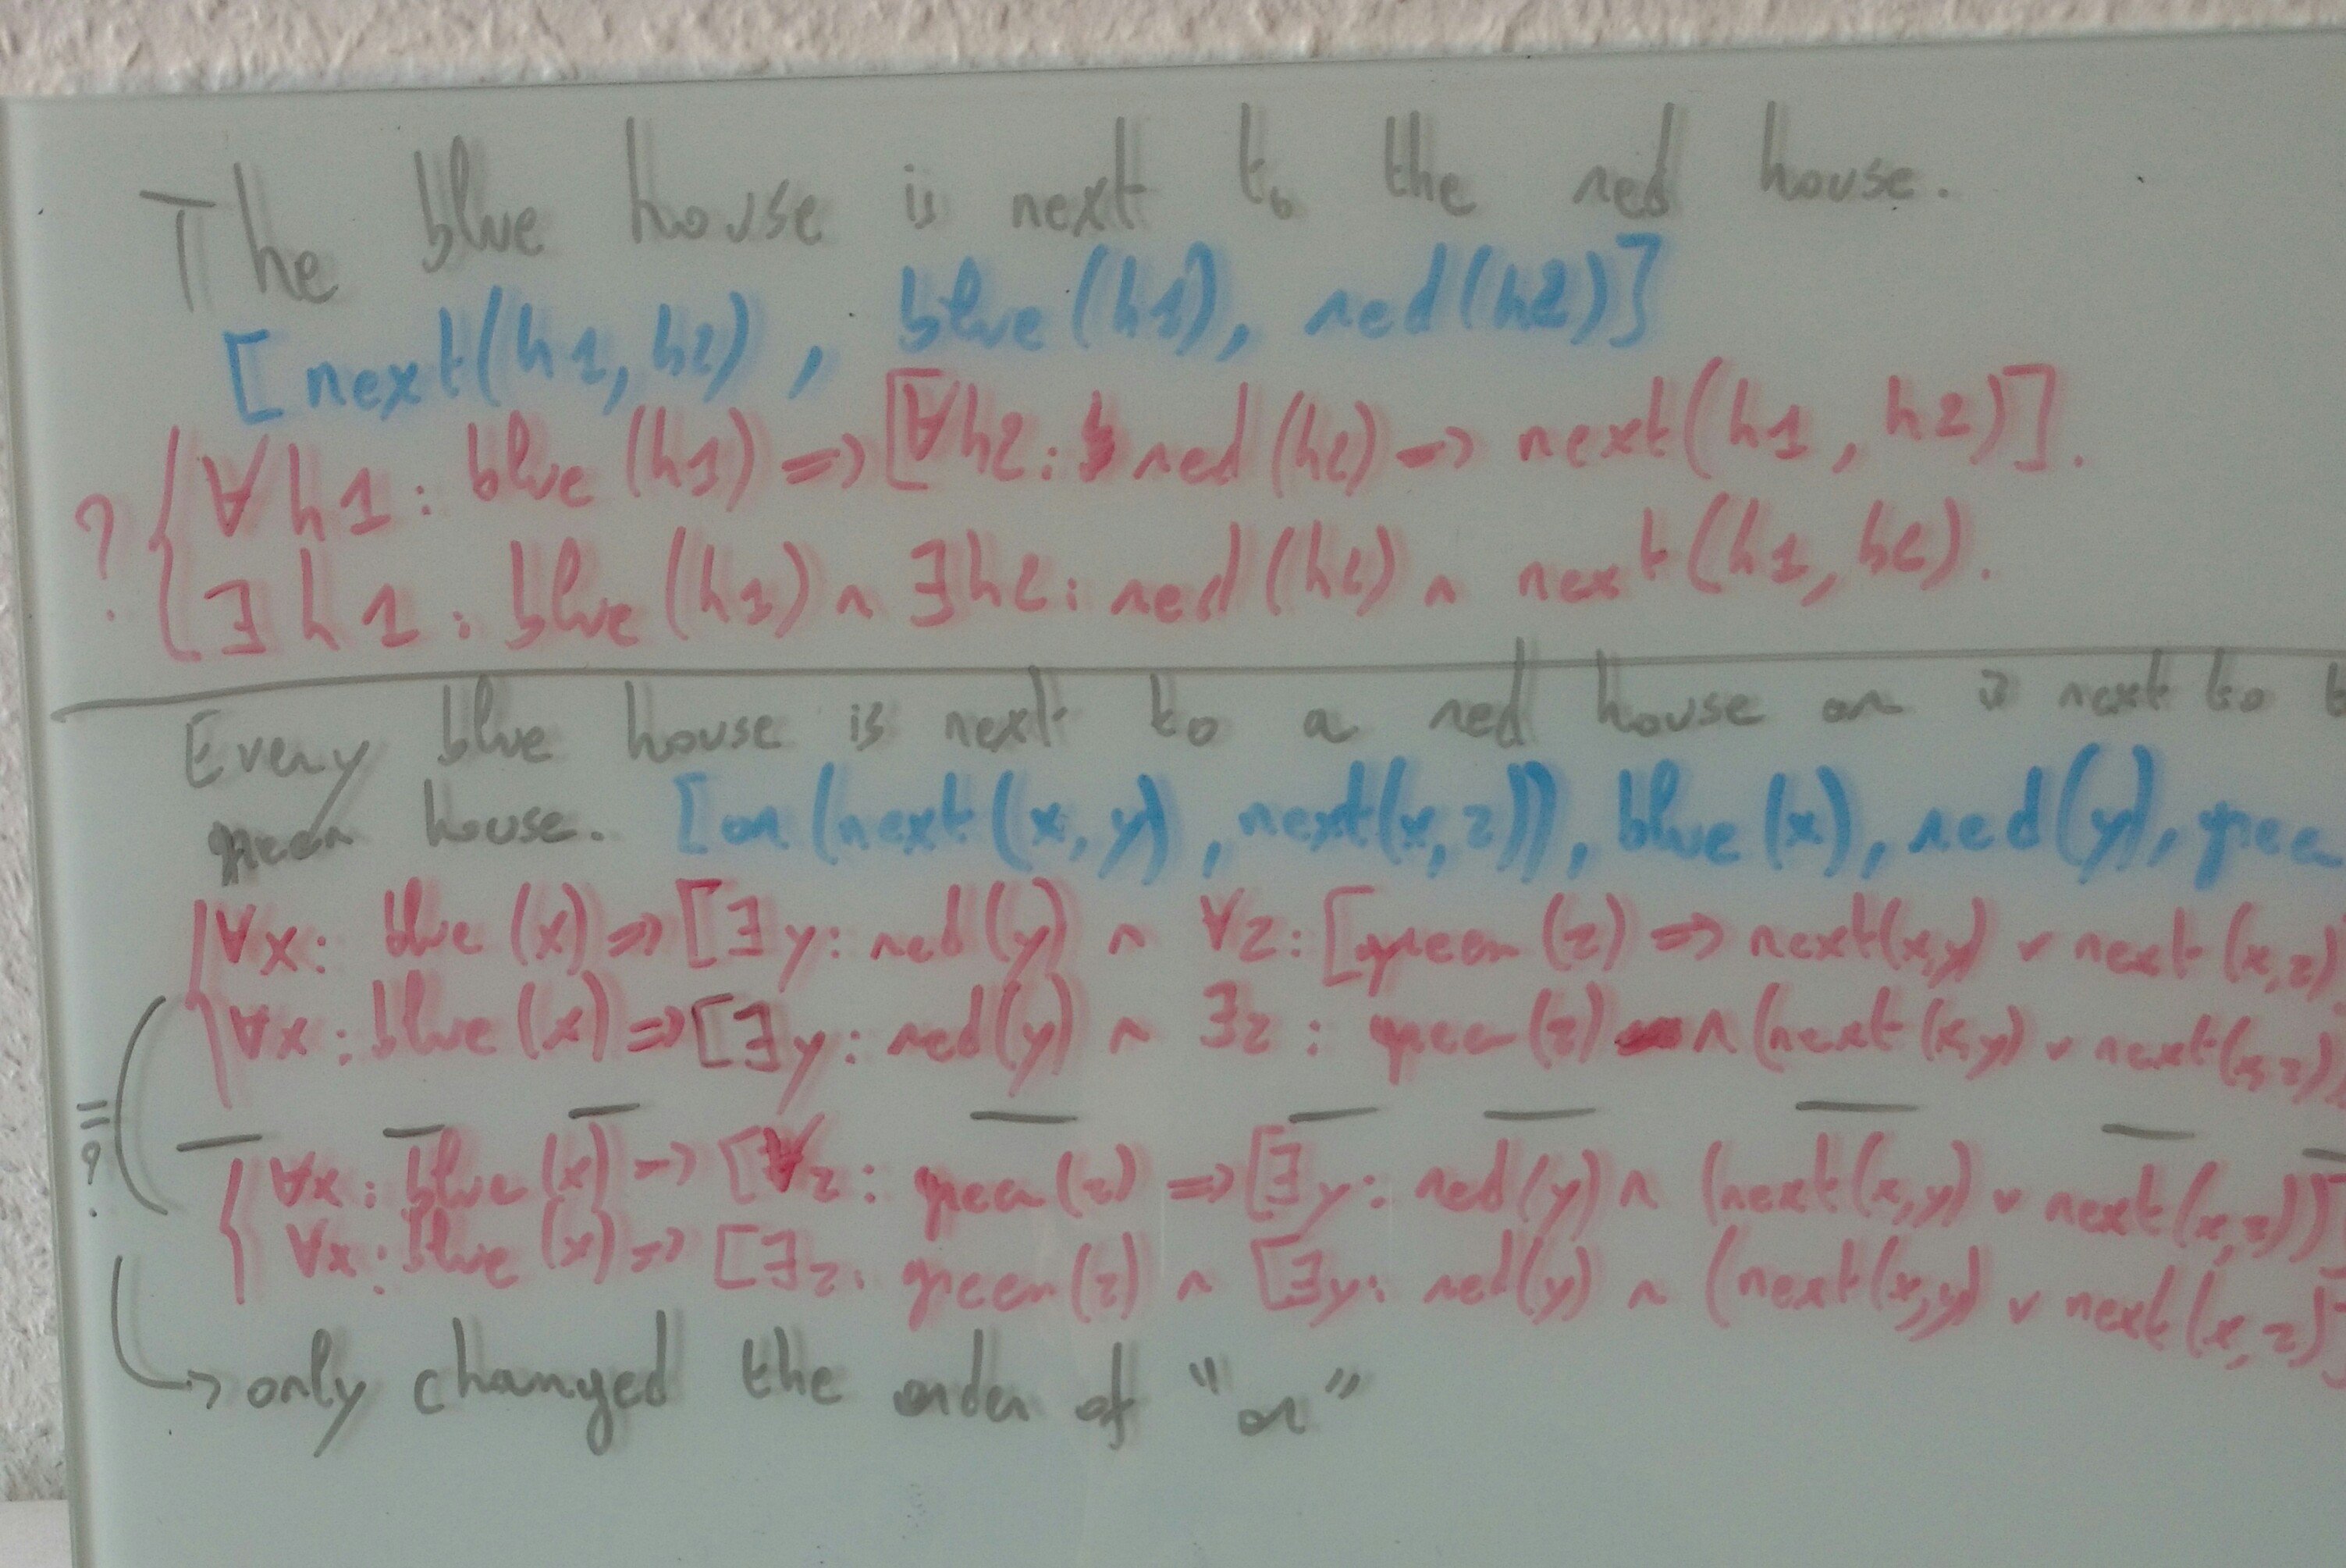 The blue house is next to the red house.
[next(h1,h2), blue(h1), red(h2)]
? { ∀h1: blue(h1) => [∀h2: red(h2) => next(h1,h2)].
∃h1: blue(h1) ∧ ∃h2: red(h2) ∧ next(h1,h2).
Every blue house is next to a red house or is next to t
green house. [or(next(x,y), next(x,z)), blue(x), red(y), green
{ ∀x: blue(x) => [∃y: red(y) ∧ ∀z: [green(z) => next(x,y) ∨ next(x,z)
∀x: blue(x) => [∃y: red(y) ∧ ∃z: green(z) ∧ (next(x,y) ∨ next(x,z))
=?
{ ∀x: blue(x) => [∀z: green(z) => [∃y: red(y) ∧ (next(x,y) ∨ next(x,z))]
∀x: blue(x) => [∃z: green(z) ∧ [∃y: red(y) ∧ (next(x,y) ∨ next(x,z)]
-> only changed the order of "or"